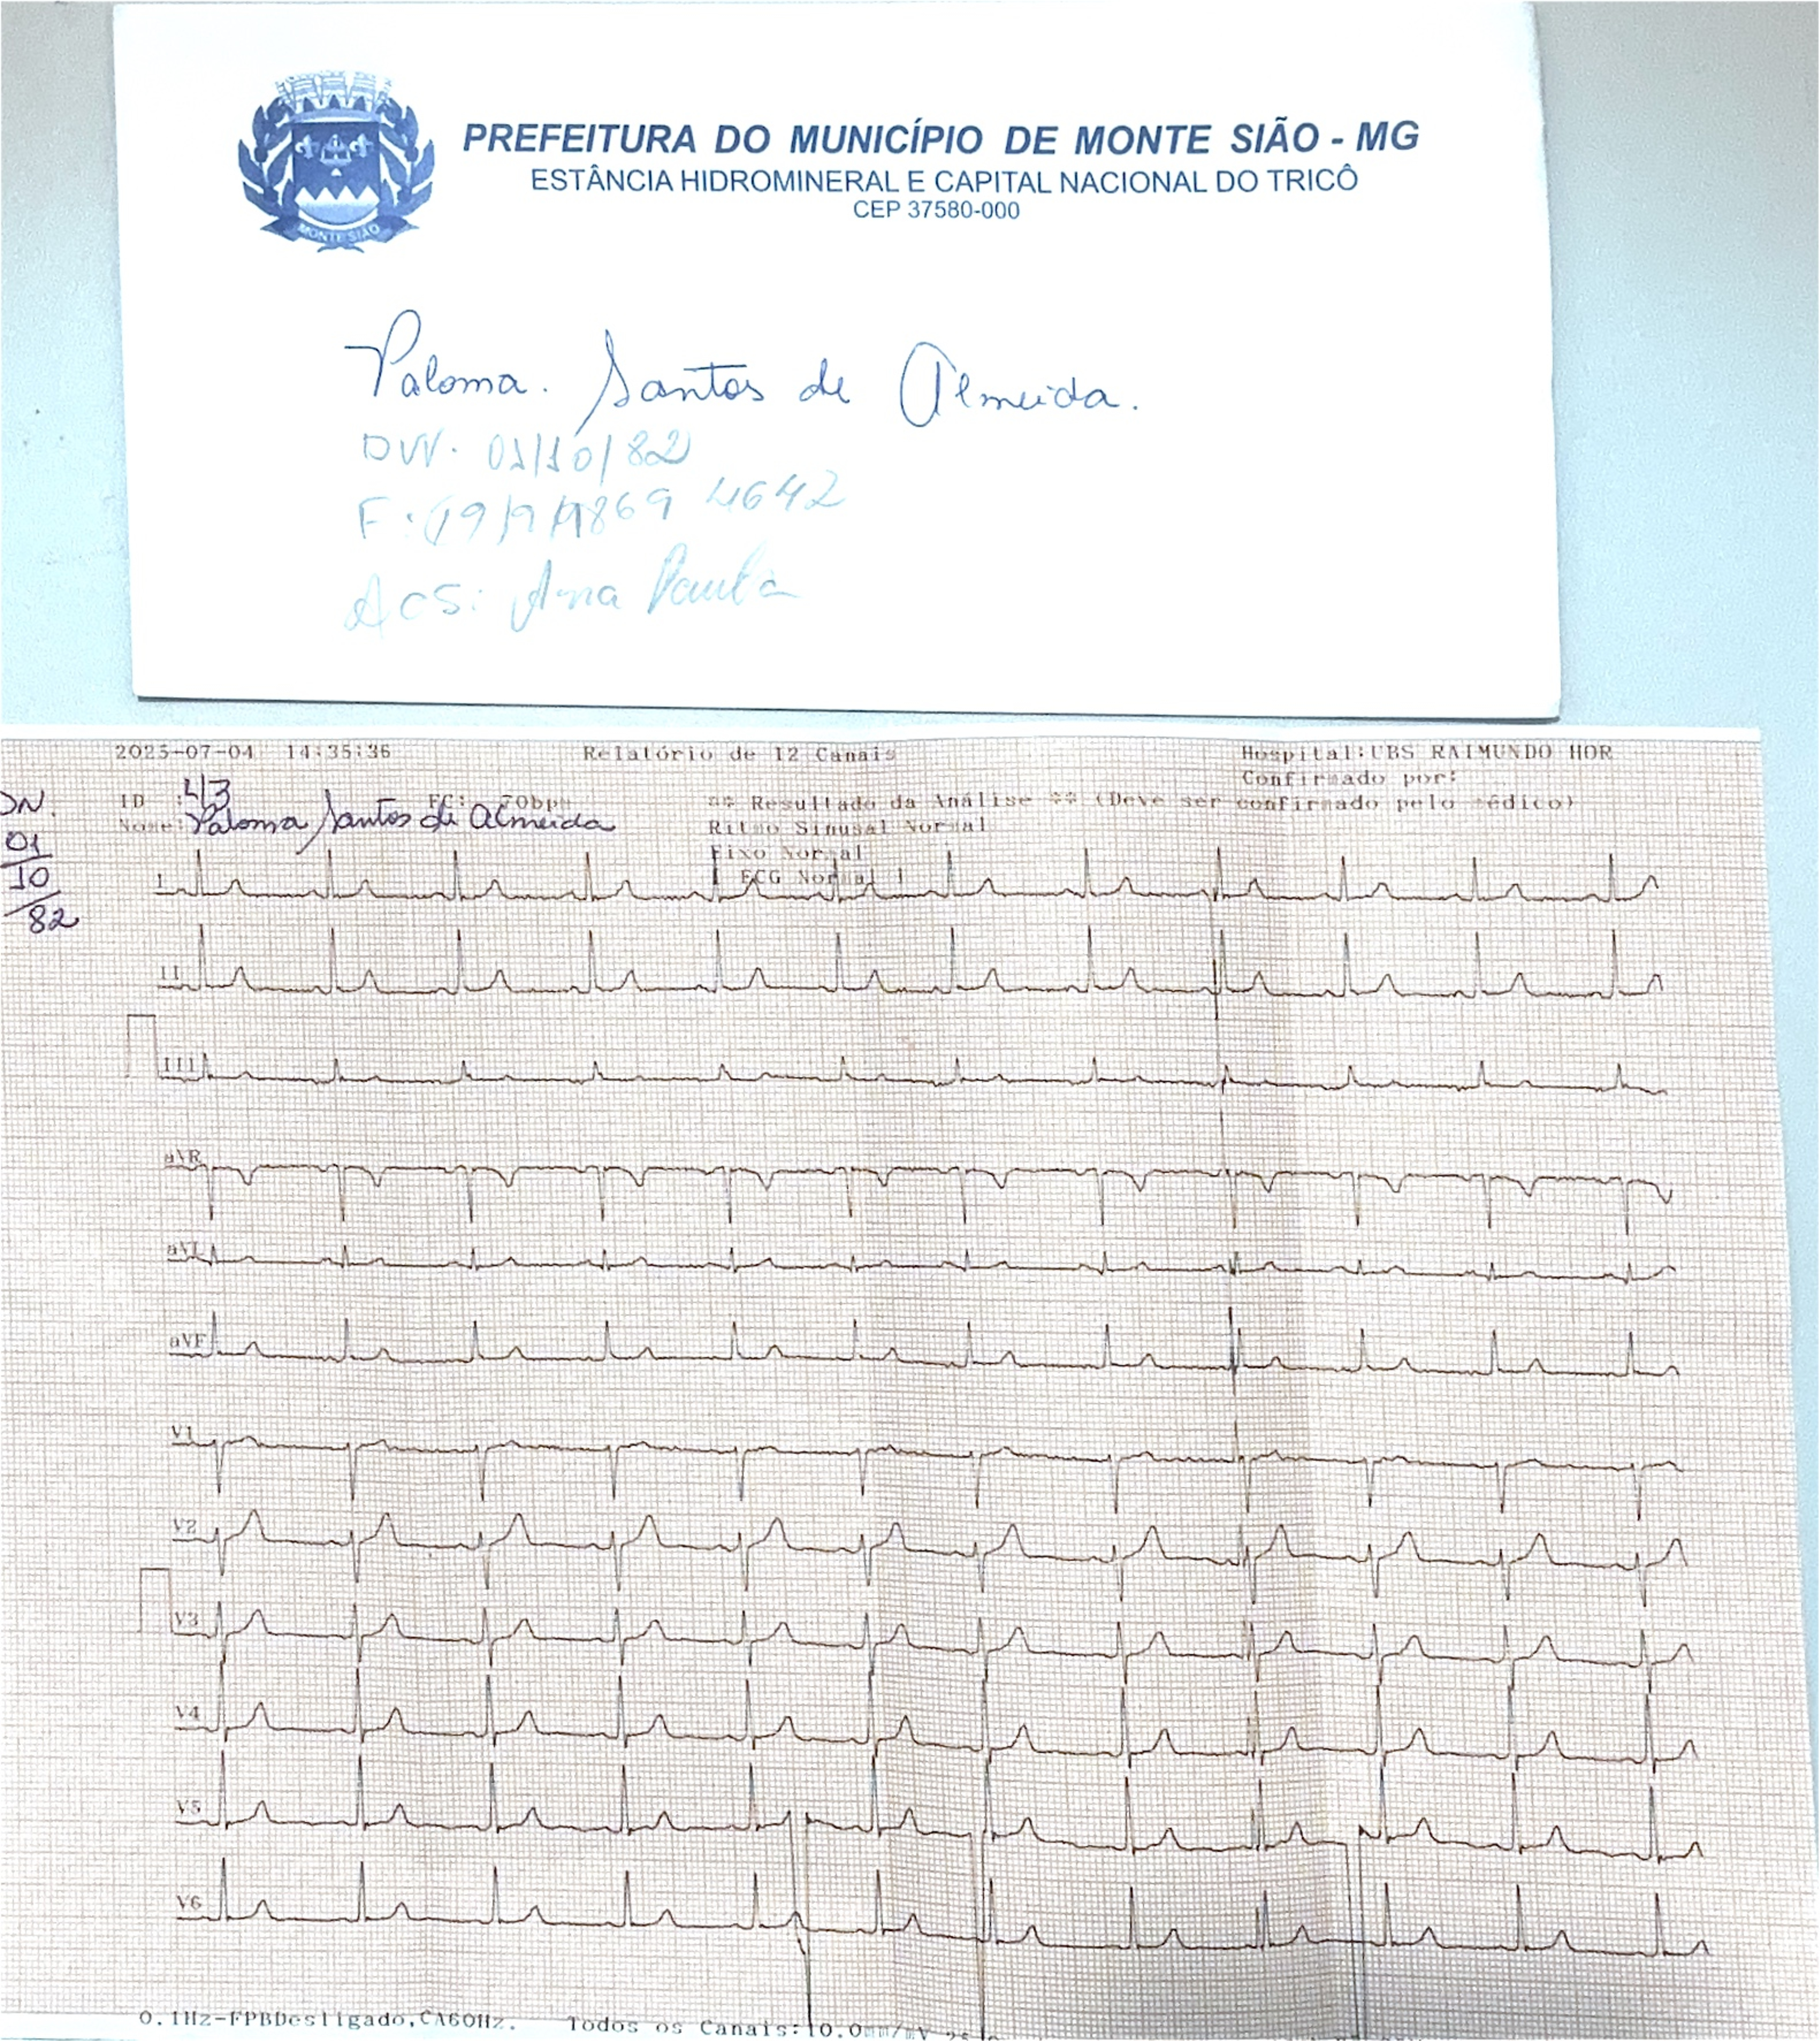 PREFEITURA DO MUNICÍPIO DE MONTE SIÃO - MG
ESTÂNCIA HIDROMINERAL E CAPITAL NACIONAL DO TRICÔ
CEP 37580-000
MONTE SIÃO
Paloma. Santos de Almeida.
DN. 01/10/82
F: (19) 9 9869 4642
ACS: Ana Paula
2025-07-04 14:35:36 Relatório de 12 Canais Hospital:UBS RAIMUNDO HOR
Confirmado por:
ID : 43 FC: 70bpm ** Resultado da Análise ** (Deve ser confirmado pelo médico)
Nome: Paloma Santos de Almeida Ritmo Sinusal Normal
Eixo Normal
! ECG Normal !
DN.
01
10
/82
I
II
III
aVR
aVL
aVF
V1
V2
V3
V4
V5
V6
0.1Hz-FPBDesligado,CA60Hz. Todos os Canais:10.0mm/mV